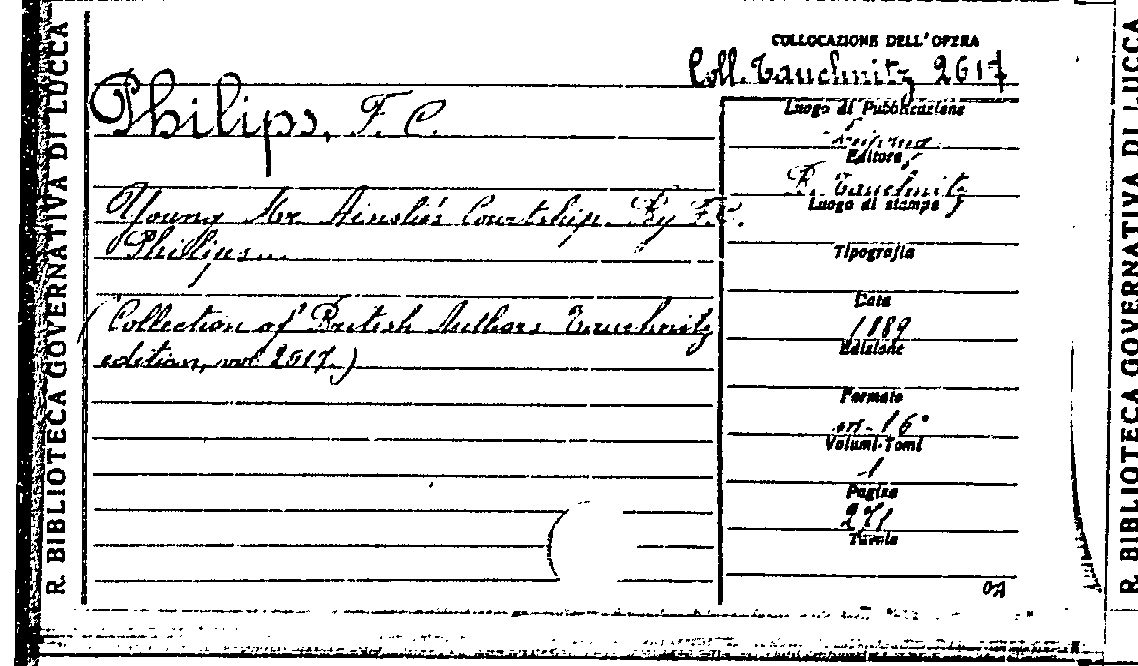 R. BIBLIOTECA GOVERNATIVA DI LUCCA
COLLOCAZIONE DELL'OPERA
Coll. Tauchnitz 2617
Philips, F. C.
Young Mr Ainslie's Courtship. By F.C.
Philips...
(Collection of British Authors Tauchnitz
edition, vol. 2617.)
Luogo di Pubblicazione
Editore
B. Tauchnitz
Luogo di stampa
Tipografia
Data
1889
Edizione
Formato
in-16°
Volumi-Tomi
1
Pagine
271
Tavole
R. BIBLIOTECA GOVERNATIVA DI LUCCA